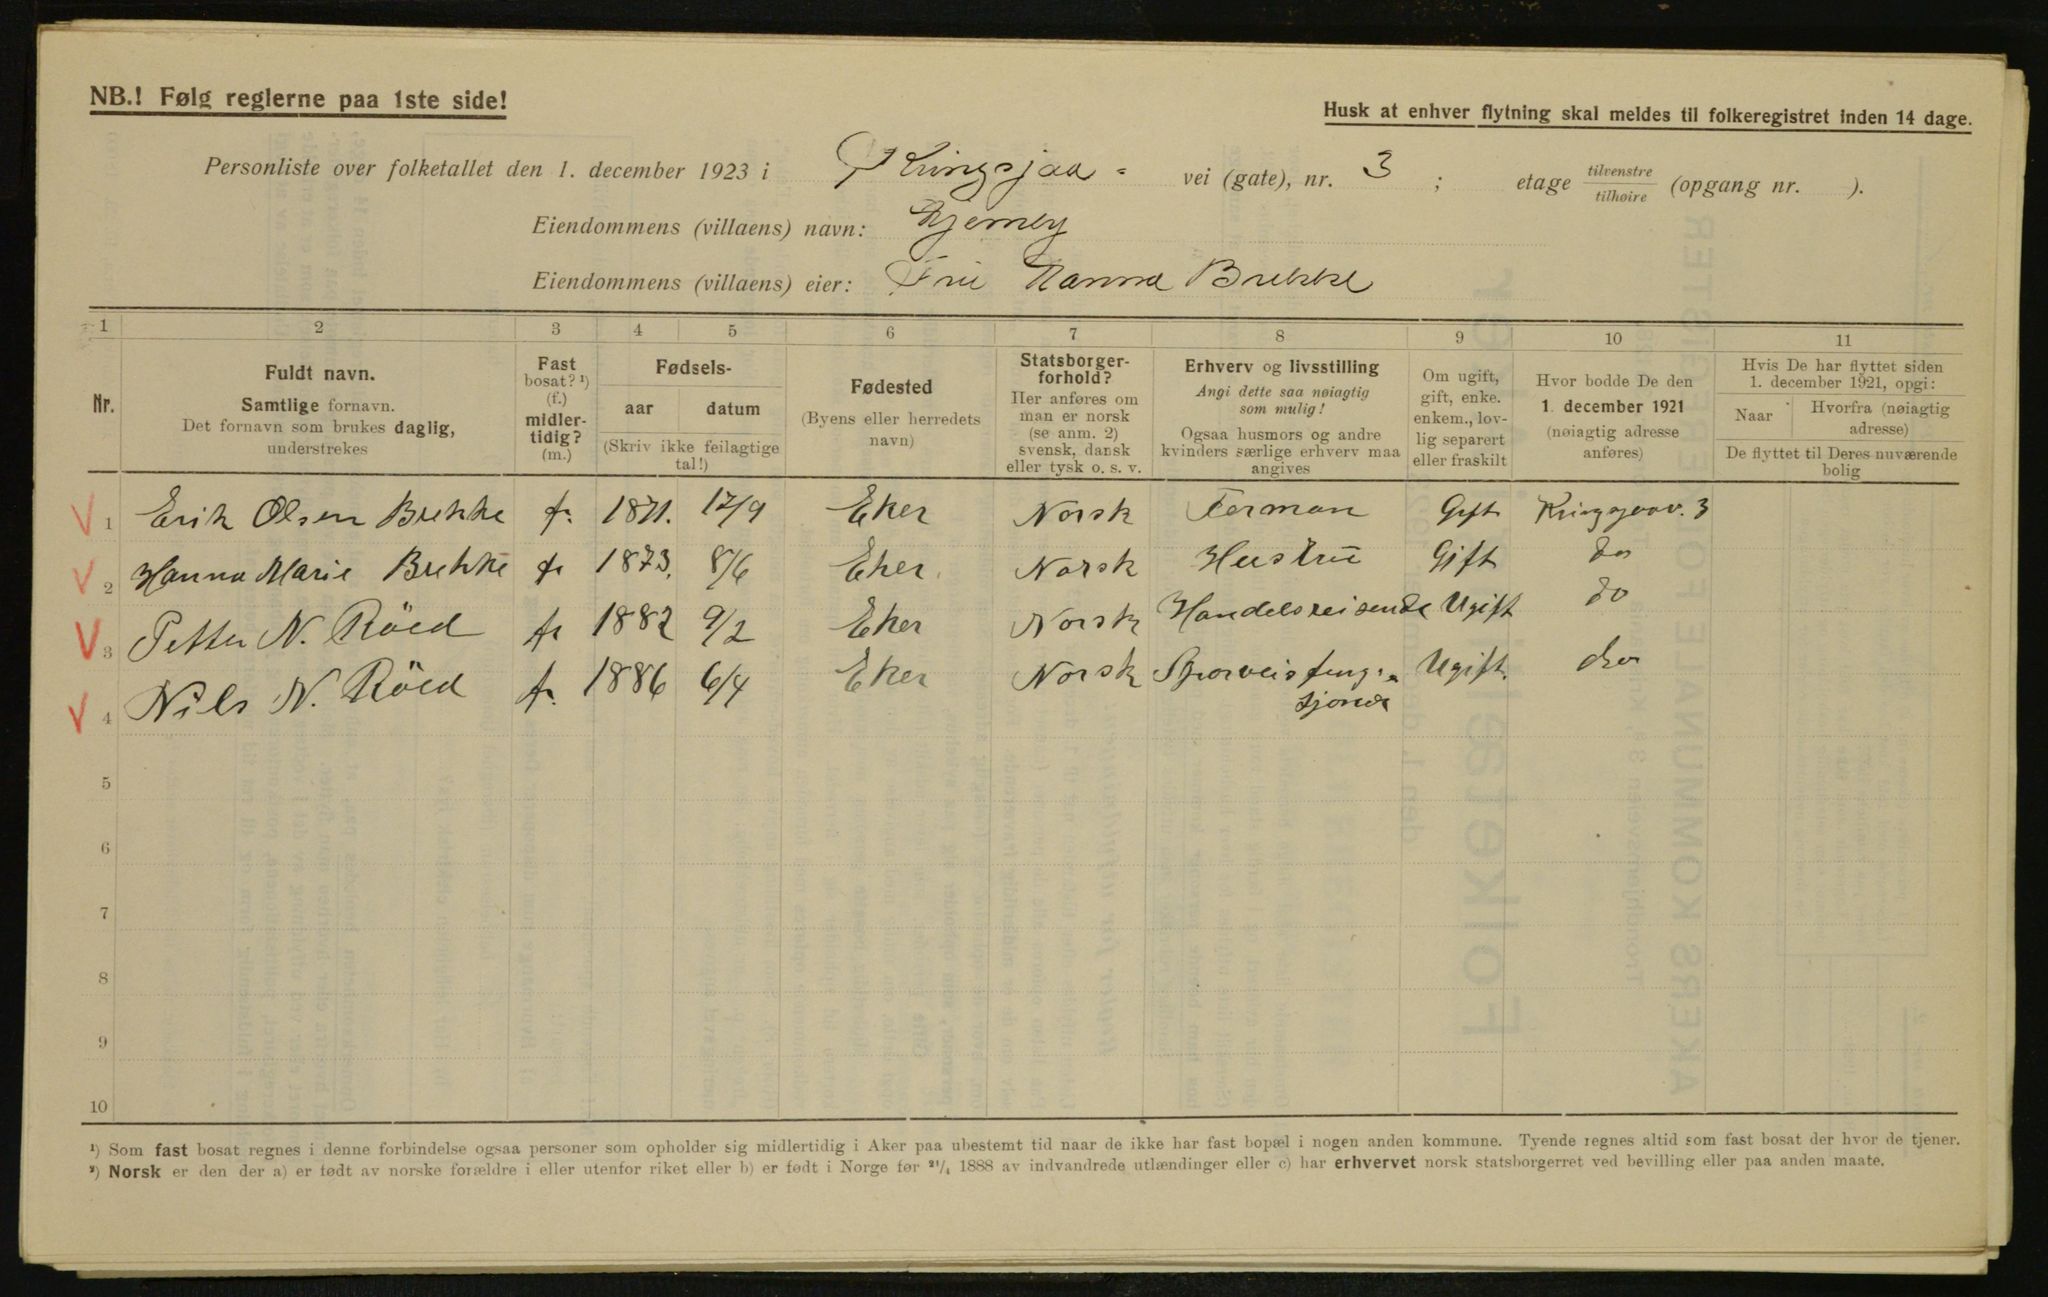 NB.! Følg reglerne paa 1ste side!
Husk at enhver flytning skal meldes til folkeregistret inden 14 dage.
Personliste over folketallet den 1. december 1923 i Kringsjaa- vei (gate), nr. 3 ; etage tilvenstre / tilhøire (opgang nr. ).
Eiendommens (villaens) navn:
Eiendommens (villaens) eier: Fru Hanna Brekke
1 2 3 4 5 6 7 8 9 10 11
Nr.
Fuldt navn.
Samtlige fornavn.
Det fornavn som brukes daglig,
understrekes
Fast
bosat? ¹)
(f.)
midler-
tidig?
(m.)
Fødsels-
aar datum
(Skriv ikke feilagtige
tal!)
Fødested
(Byens eller herredets
navn)
Statsborger-
forhold?
Her anføres om
man er norsk
(se anm. 2)
svensk, dansk
eller tysk o. s. v.
Erhverv og livsstilling
Angi dette saa nøiagtig
som mulig!
Ogsaa husmors og andre
kvinders særlige erhverv maa
angives
Om ugift,
gift, enke.
enkem., lov-
lig separert
eller fraskilt
Hvor bodde De den
1. december 1921
(nøiagtig adresse
anføres)
Hvis De har flyttet siden
1. december 1921, opgi:
Naar Hvorfra (nøiagtig
adresse)
De flyttet til Deres nuværende
bolig
1 Erik Olsen Brekke f. 1871. 17/9 Eker Norsk Forman Gift Kringsjaav. 3
2 Hanna Marie Brekke f 1873. 8/6 Eker Norsk Hustru Gift do
3 Petter N. Röed f 1882 9/2 Eker Norsk Handelsreisende Ugift do
4 Nils N. Röed f. 1886 6/4 Eker Norsk Sporveisfung- Ugift. do
5
6
7
8
9
10
¹) Som fast bosat regnes i denne forbindelse ogsaa personer som opholder sig midlertidig i Aker paa ubestemt tid naar de ikke har fast bopæl i nogen anden kommune. Tyende regnes altid som fast bosat der hvor de tjener.
²) Norsk er den der a) er født av norske forældre i eller utenfor riket eller b) er født i Norge før ²¹/₄ 1888 av indvandrede utlændinger eller c) har erhvervet norsk statsborgerret ved bevilling eller paa anden maate.